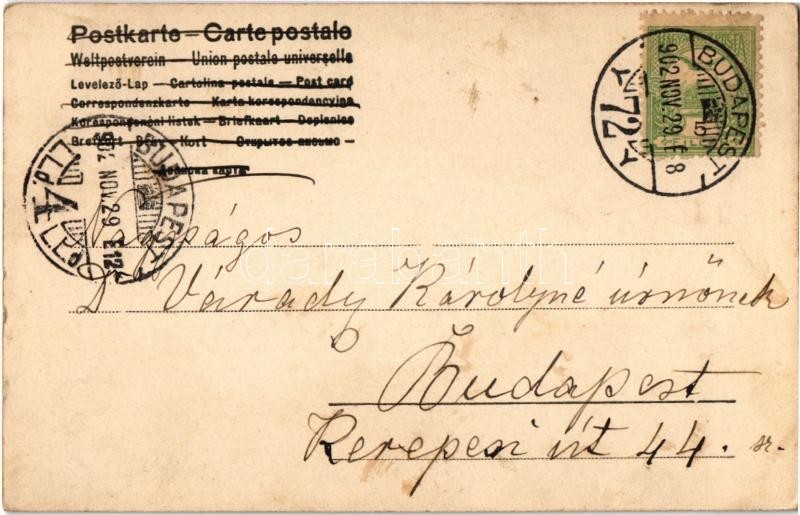 Postkarte – Carte postale
Weltpostverein – Union postale universelle
Levelező-Lap – Cartolina postale – Post card
Correspondenzkarte – Karta korespondencyjna
Korespondenční lístek – Briefkaart – Dopisnice
Brefkort – Brev-Kort – Открытое письмо –
BUDAPEST
902 NOV. 29 E 8
72
BUDAPEST
902 NOV. 29 E 12
4
Nagyságos
Dr Várady Károlyné úrnőnek
Budapest
Kerepesi út 44. sz.
darabanth